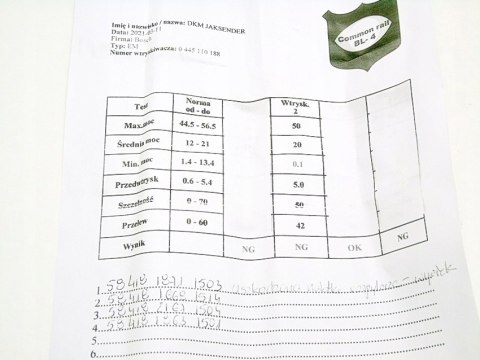 Imię i nazwisko / nazwa: DKM JAKSENDER
Data: 2021-
Firma: Bosch
Typ: EM
Numer wtryskiwacza: 0 445 110 188
Common rail
BL- 4
Test Norma od - do Wtrysk. 2
Max.moc 44.5 - 56.5 50
Średnia moc 12 - 21 20
Min. moc 1.4 - 13.4 0.1
Przedwtrysk 0.6 - 5.4 5.0
Szczelność 0 - 70 50
Przelew 0 - 60 42
Wynik NG NG OK NG
1. 58418 1503
2. 58418
3. 58418
4. 58418
5.
6.